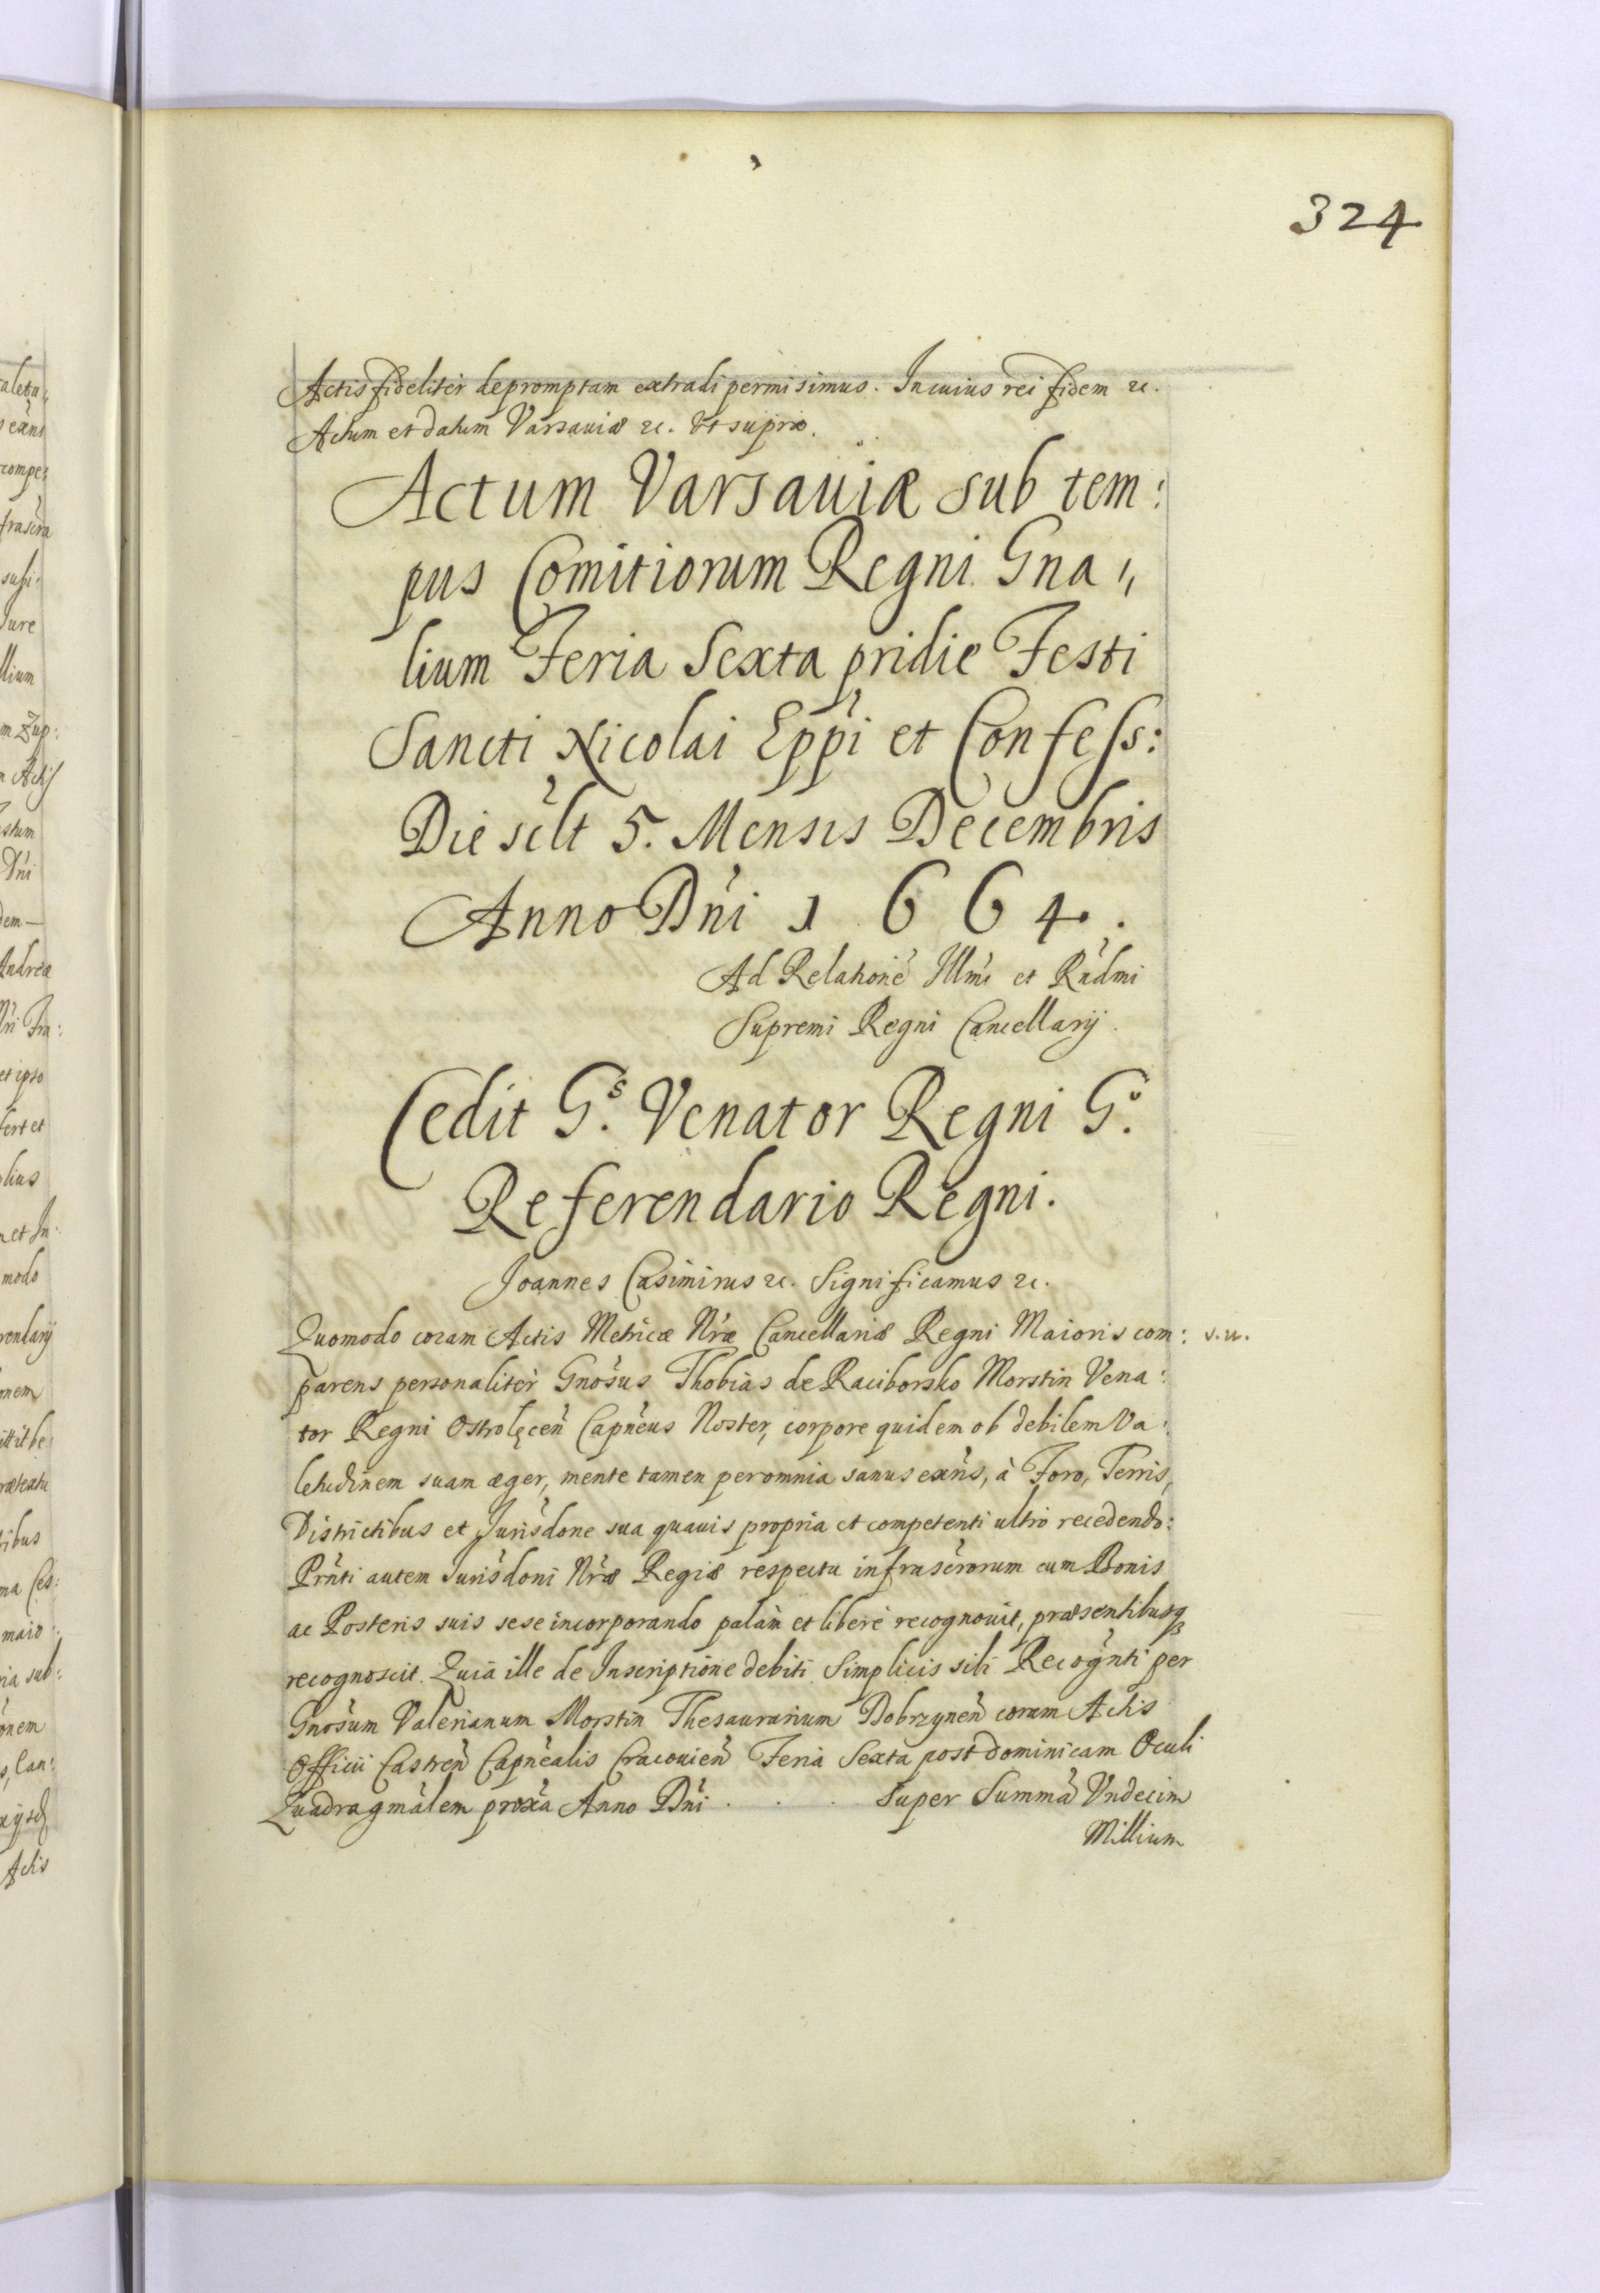 324
Actis fideliter depromptam extradi permisimus. In cuius rei fidem &c.
Actum et datum Varsaviæ &c. Ut supra.
Actum Varsauiæ sub tem:
pus Comitiorum Regni Gna,,
lium Feria Sexta pridie Festi
Sancti Nicolai Eppi et Confess:
Die scilt 5. Mensis Decembris
Anno Dni 1664.
Ad Relatione Illmi et Rndmi
Supremi Regni Cancellarij.
Cedit Gs. Venator Regni Go.
Referendario Regni.
Joannes Casimirus &c. Significamus &c.
Quomodo coram Actis Metricæ Nræ Cancellariæ Regni Maioris com: s. u.
parens personaliter Gnosus Thobias de Raciborsko Morstin Vena:
tor Regni Ostrolęcen Capneus Noster, corpore quidem ob debilem Va:
letudinem suam æger, mente tamen per omnia sanus exns, à Foro, Terris,
Districtibus et Jurisdone sua quauis propria et competenti ultro recedendo:
Prnti autem Jurisdoni Nræ Regiæ respectu infrascrorum cum Bonis
ac Posteris suis sese incorporando palàm et liberè recognouit, præsentibusq
recognoscit. Quia ille de Inscriptione debiti Simplicis sibi Recognti per
Gnosum Valerianum Morstin Thesaurarium Dobrzynen coram Actis
Officii Castren Capnealis Cracouien Feria Sexta post dominicam Oculi
Quadragmalem proxa Anno Dni . . . Super Summa Vndecim
Millium